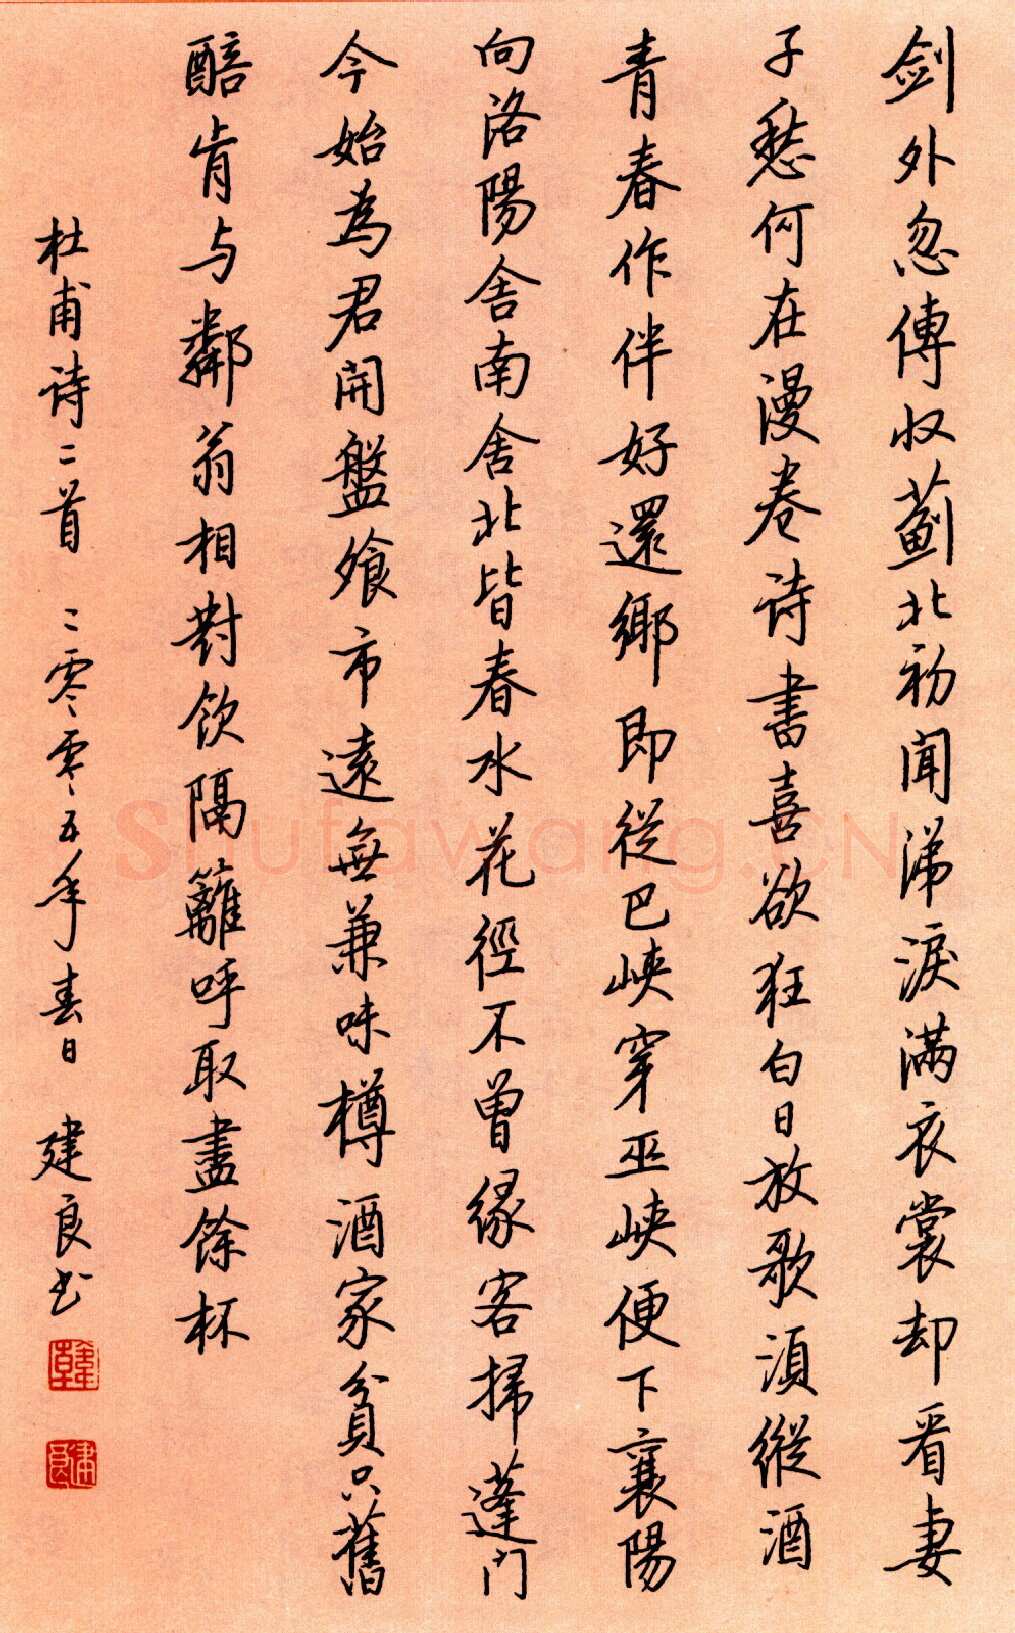 剑外忽傳收薊北初聞涕淚滿衣裳却看妻
子愁何在漫卷诗書喜欲狂白日放歌須縱酒
青春作伴好還鄉即從巴峽穿巫峽便下襄陽
向洛陽舍南舍北皆春水花徑不曾緣客掃蓬門
今始為君開盤飧市遠無兼味樽酒家貧只舊
醅肯与鄰翁相對飲隔籬呼取盡餘杯
杜甫诗二首 二零零五年春日 建良书
韓
建良
Shufawang.CN